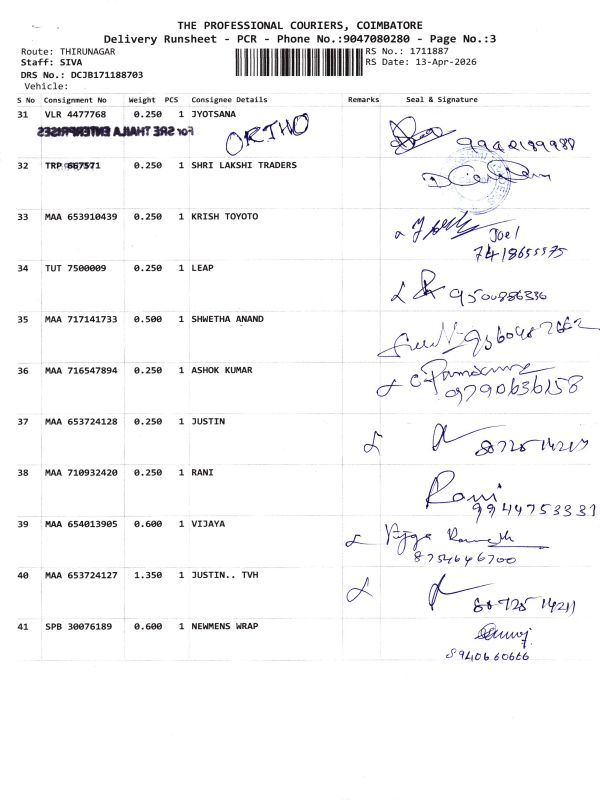 THE PROFESSIONAL COURIERS, COIMBATORE
Delivery Runsheet - PCR - Phone No.:9047080280 - Page No.:3
Route: THIRUNAGAR RS No.: 1711887
Staff: SIVA RS Date: 13-Apr-2026
DRS No.: DCJB171188703
Vehicle:
S No Consignment No Weight PCS Consignee Details Remarks Seal & Signature
31 VLR 4477768 0.250 1 JYOTSANA
For SRE THAILA ENTERPRISES ORTHO
32 TRP 667571 0.250 1 SHRI LAKSHI TRADERS
33 MAA 653910439 0.250 1 KRISH TOYOTO
Joel
7418655575
34 TUT 7500009 0.250 1 LEAP
9500886336
35 MAA 717141733 0.500 1 SHWETHA ANAND
36 MAA 716547894 0.250 1 ASHOK KUMAR
9790636158
37 MAA 653724128 0.250 1 JUSTIN
38 MAA 710932420 0.250 1 RANI
Rani
9944753331
39 MAA 654013905 0.600 1 VIJAYA
8754646700
40 MAA 653724127 1.350 1 JUSTIN.. TVH
41 SPB 30076189 0.600 1 NEWMENS WRAP
8940660666